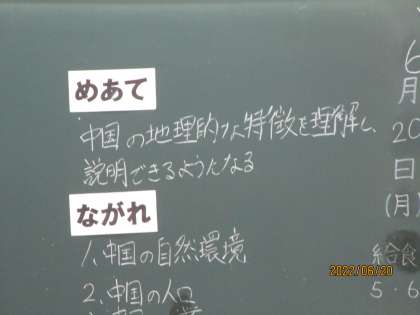 めあて
中国の地理的な特徴を理解し、
説明できるようになる
ながれ
1、中国の自然環境
2、中国の人口
6
月
20
日
(月)
給食
5・6
2022/06/20